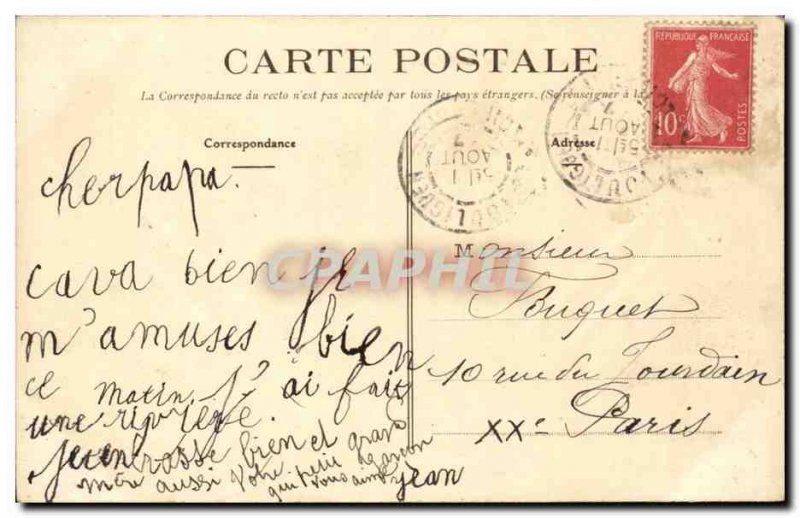 CARTE POSTALE
La Correspondance du recto n'est pas acceptée par tous les pays étrangers. (Se renseigner à la
Correspondance
Adresse
RÉPUBLIQUE FRANÇAISE
10c
POSTES
AOUT
AOUT
cher papa.
cava bien je
m'amuses bien
ce matin J'ai fait
une
bien et grand
mère aussi Votre petit garcon
qui vous aime
jean
Monsieur
Buquet
10 rue du Jourdain
XXe Paris
CPAPHIL